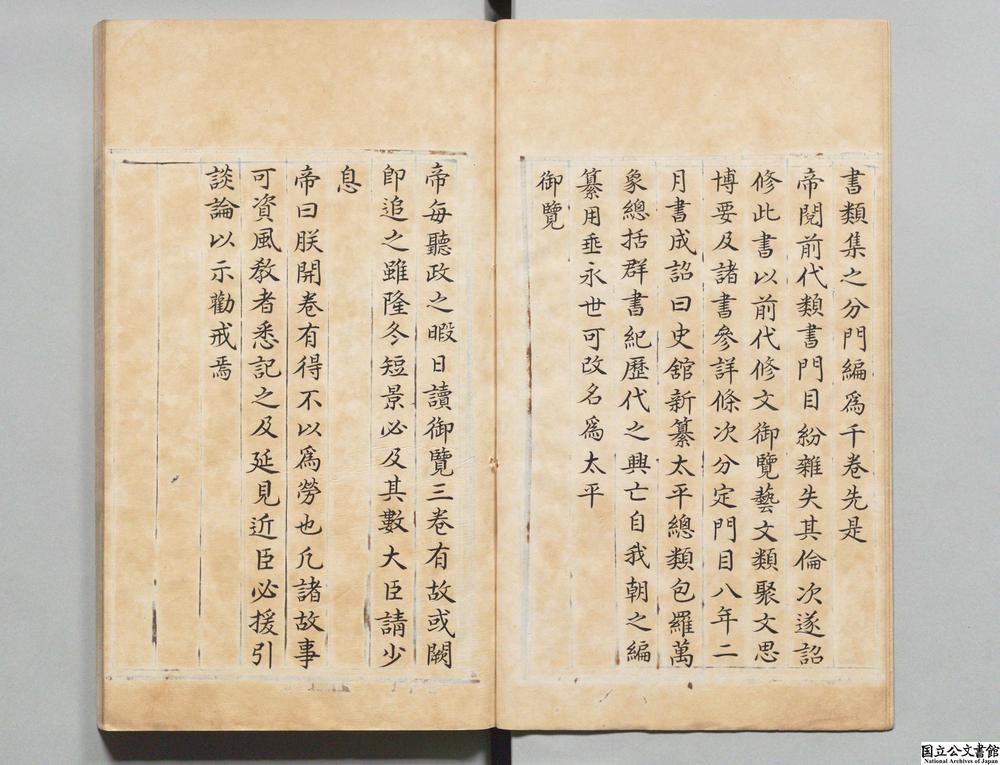 書類集之分門編爲千卷先是
帝閱前代類書門目紛雜失其倫次遂詔
修此書以前代修文御覽藝文類聚文思
博要及諸書參詳條次分定門目八年二
月書成詔曰史舘新纂太平總類包羅萬
象總括群書紀歷代之興亡自我朝之編
纂用垂永世可改名爲太平
御覽
帝每聽政之暇日讀御覽三卷有故或闕
卽追之雖隆冬短景必及其數大臣請少
息
帝曰朕開卷有得不以爲勞也凢諸故事
可資風敎者悉記之及延見近臣必援引
談論以示勸戒焉
国立公文書館
National Archives of Japan